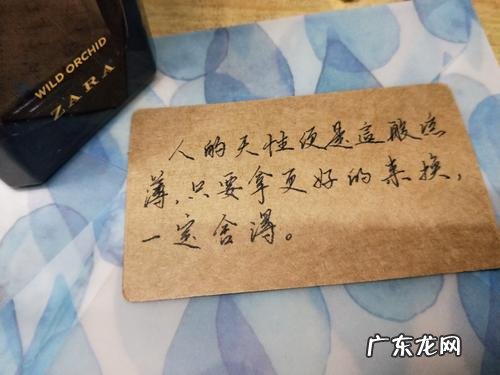 WILD ORCHID
ZARA
人的天性便是这般凉
薄,只要拿更好的来换,
一定舍得。
广东龙网